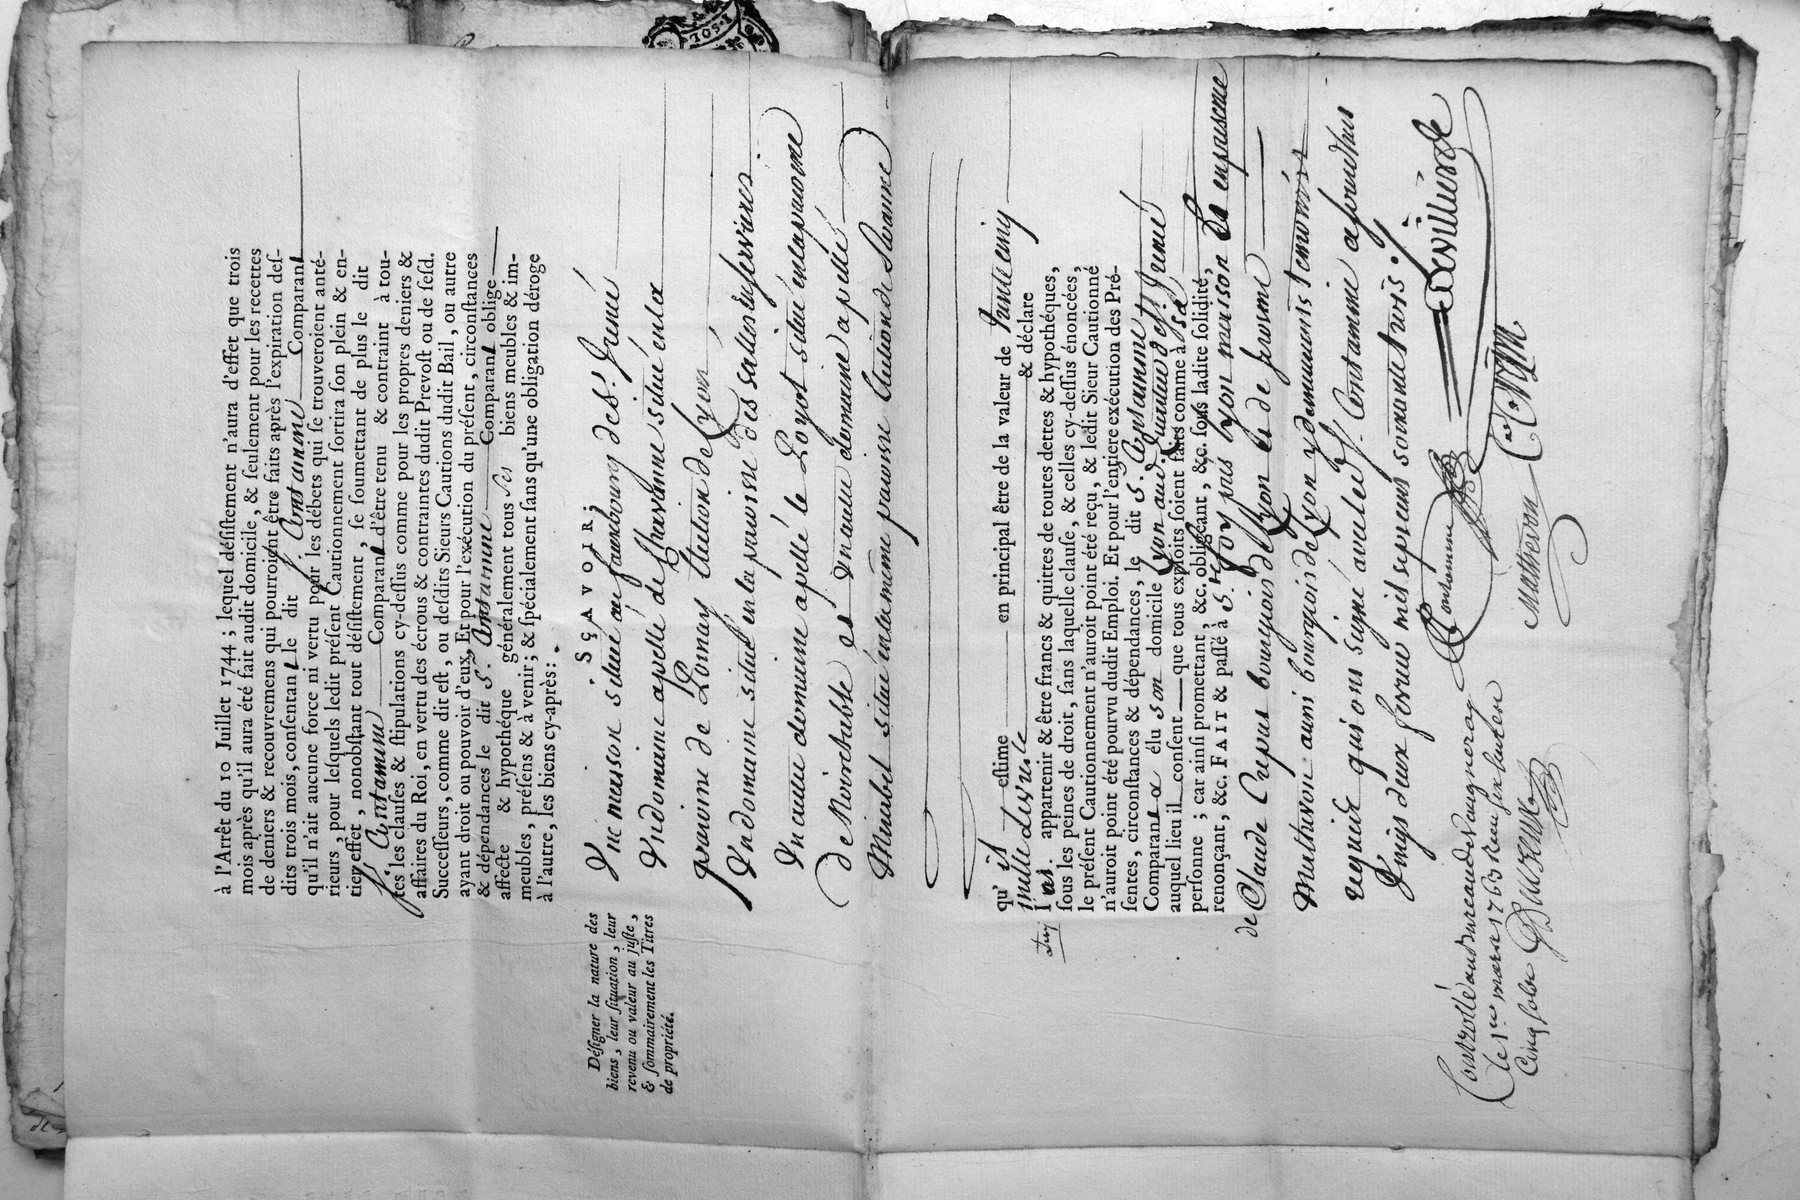 à l'Arrêt du 10 Juillet 1744 ; lequel désistement n'aura d'effet que trois
mois après qu'il aura été fait audit domicile, & seulement pour les recettes
de deniers & recouvremens qui pourroient être faits après l'expiration des-
dits trois mois, consentant le dit S.r Constamine Comparant
qu'il n'ait aucune force ni vertu pour les débets qui se trouveroient anté-
rieurs, pour lesquels ledit présent Cautionnement sortira son plein & en-
tier effet, nonobstant tout désistement, se soumettant de plus le dit
S.r Contamine Comparant d'être tenu & contraint à tou-
tes les clauses & stipulations cy-dessus comme pour les propres deniers &
affaires du Roi, en vertu des écrous & contraintes dudit Prevost ou de sesd.
Successeurs, comme dit est, ou desdits Sieurs Cautions dudit Bail, ou autre
ayant droit ou pouvoir d'eux, Et pour l'exécution du présent, circonstances
& dépendances le dit S.r Constamine Comparant oblige
affecte & hypothéque généralement tous ses biens meubles & im-
meubles, présens & à venir ; & spécialement sans qu'une obligation déroge
à l'autre, les biens cy-après :
SÇAVOIR;
Désigner la nature des
biens, leur situation, leur
revenu ou valeur au juste,
& sommairement les Titres
de propriété.
Une maison située au fauxbourg de St. Irené
Un domaine apellé de situé en la
paroisse de Election de Lyon
Un domaine situé en la paroisse des salles
Un autre domaine apellé le situé en la paroisse
de Noiretable et un autre domaine apellé
situé en la même paroisse Election de Roanne
qu' il estime en principal être de la valeur de trente cinq
mille livres & déclare
lui appartenir & être francs & quittes de toutes dettes & hypothéques,
sous les peines de droit, sans laquelle clause, & celles cy-dessus énoncées,
le présent Cautionnement n'auroit point été reçu, & ledit Sieur Cautionné
n'auroit point été pourvu dudit Emploi. Et pour l'entiere exécution des Pré-
sentes, circonstances & dépendances, le dit S. Constamine
Comparant a élu son domicile Lyon aud. St. Irené
auquel lieu il consent que tous exploits soient faits comme à sa
personne ; car ainsi promettant, &c. obligeant, &c. sous ladite solidité,
renonçant, &c. FAIT & passé à S.te foy près Lyon maison en presence
de Claude bourgeois de Lyon et de Jerosme
Mathevon aussi bourgeois de Lyon y demeurants temoins
requis qui ont signé avec led. S.r Constamine
Vingt deux fevrier mil sept cent soixante trois
Constamine Devilliers
Mathevon
Controllé au bureau de Vaugneray
le 1er mars 1763 Reçu
Cinq sols